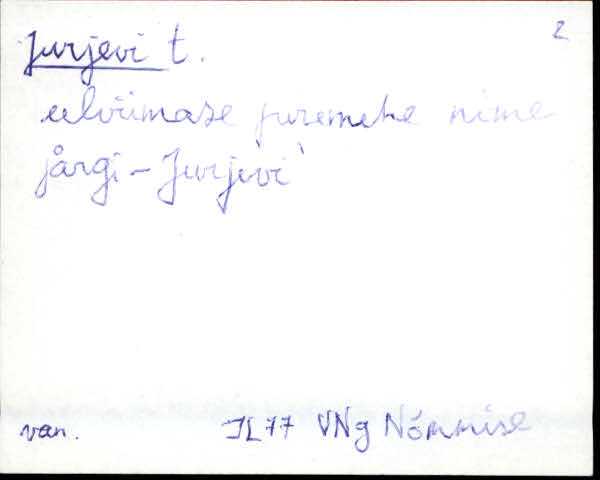 Jurjevi t. 2
eelviimase peremehe nime
järgi – Jurjevi
van. JL 77 VNg Nõmmise